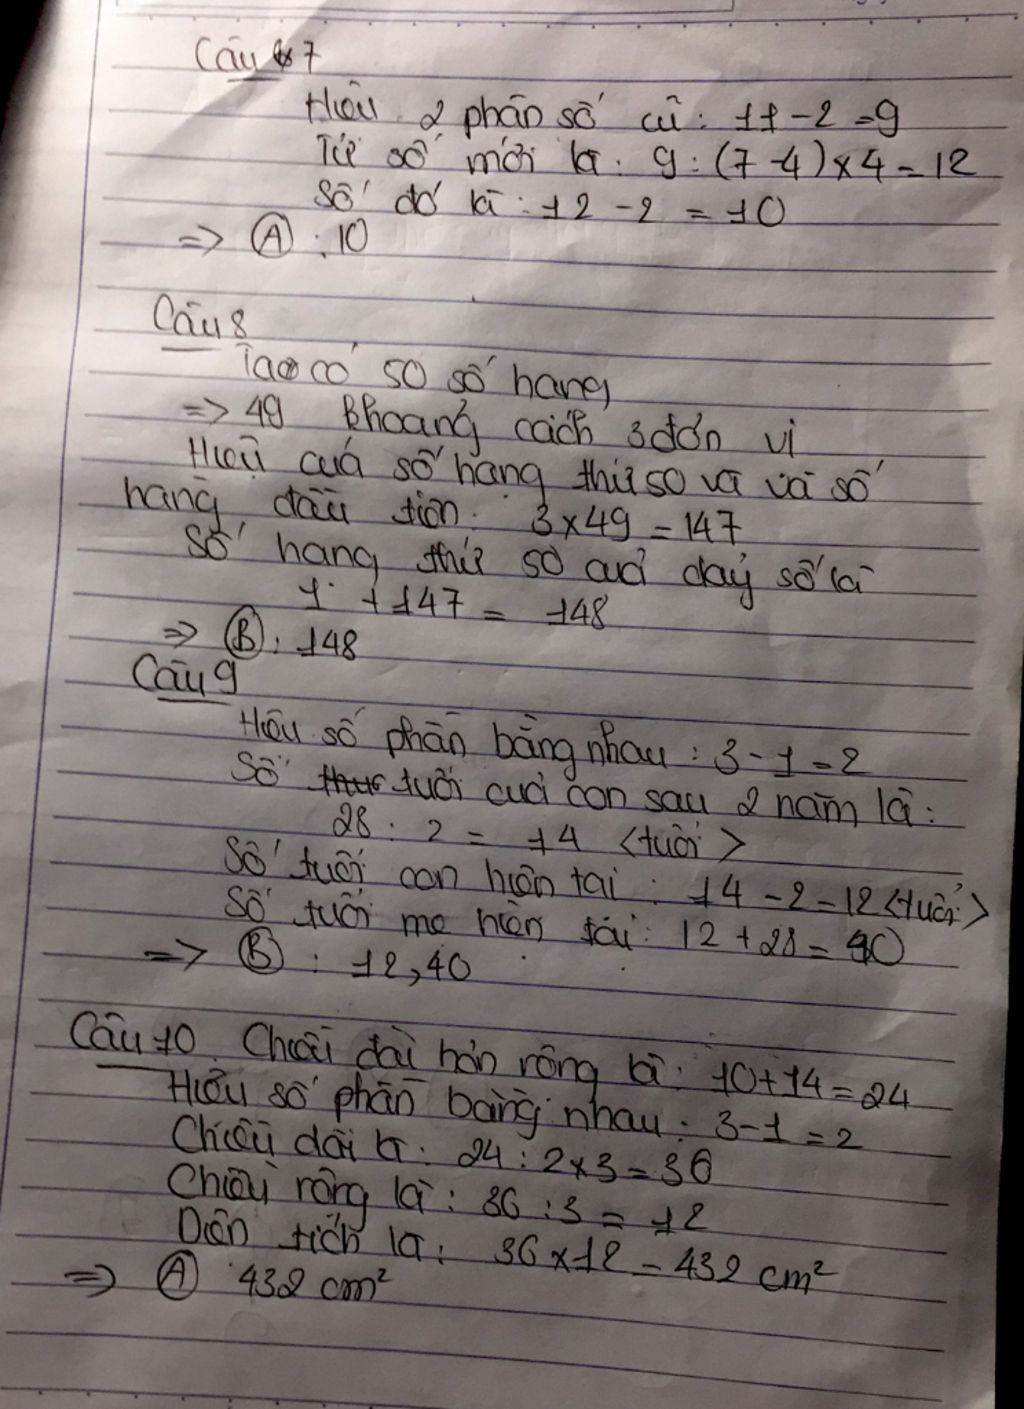 Câu 7
Hiệu 2 phân số cũ: 11-2=9
Tử số mới là: 9:(7-4)×4=12
Số đó là: 12-2=10
=> Ⓐ: 10
Câu 8
Ta có 50 số hạng
=> 49 khoảng cách 3 đơn vị
Hiệu của số hạng thứ 50 và và số
hạng đầu tiên: 3×49=147
Số hạng thứ 50 của dãy số là
1+147=148
=> Ⓑ: 148
Câu 9
Hiệu số phần bằng nhau: 3-1=2
Số tuổi của con sau 2 năm là:
28:2=14 <tuổi>
Số tuổi con hiện tại: 14-2=12<tuổi>
Số tuổi mẹ hiện tại: 12+28=40
=> Ⓑ: 12,40
Câu 10. Chiều dài hơn rộng là: 10+14=24
Hiệu số phần bằng nhau: 3-1=2
Chiều dài là: 24:2×3=36
Chiều rộng là: 36:3=12
Diện tích là: 36×12=432 cm²
=> Ⓐ 432 cm²